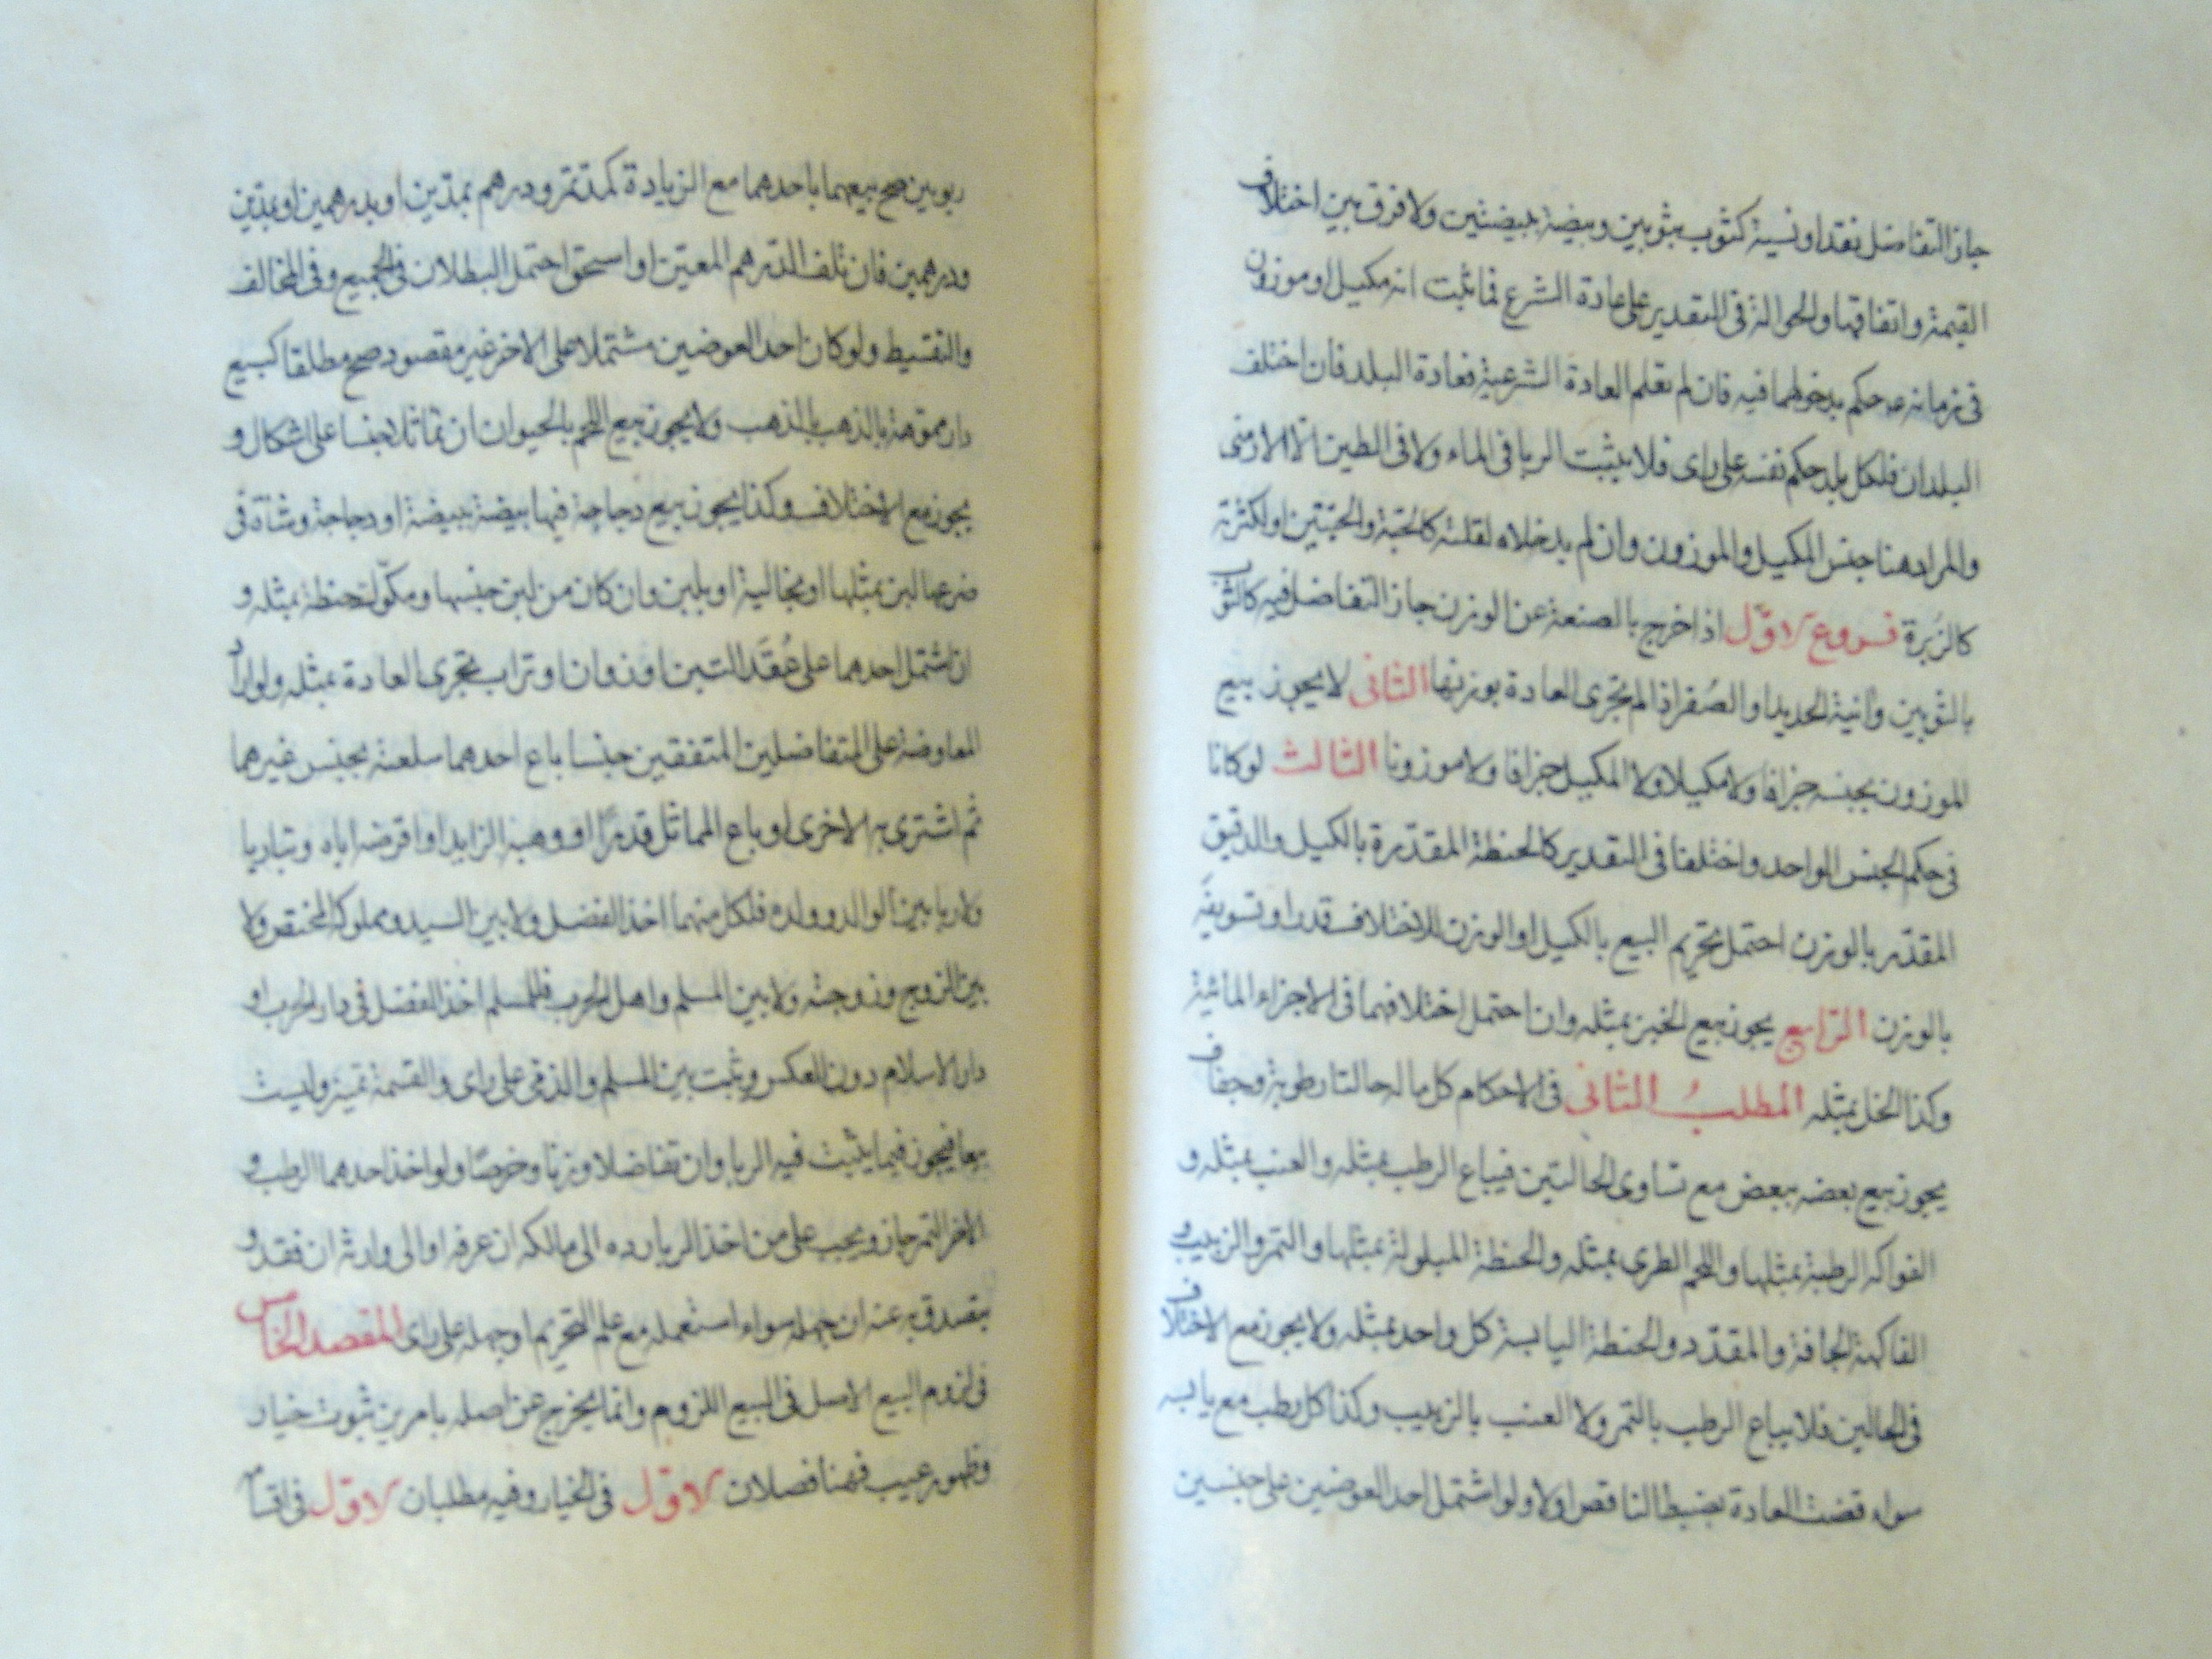 جاز التفاضل نقدا ونسية كثوب بثوبين وبيضة ببيضتين ولا فرق بين اختلاف
القيمة واتفاقها والحوالة في التقدير على عادة الشرع فما ثبت انه مكيل او موزون
في زمانه عم حكم بدخولهما فيه فان لم تعلم العادة الشرعية فعادة البلد فان اختلف
البلدان فلكل بلد حكم نفسه على راى فلا يثبت الربا في الماء ولا في الطين الا الارمني
والمراد هنا جنس المكيل والموزون وان لم يدخلاه لقلته كالحبة والحبتين او لكثرته
كالزبرة فروع الاول اذا خرج بالصنعة عن الوزن جاز التفاضل فيه كالثوب
بالثوبين وآنية الحديد او الصفر اذا لم تجرى العادة بوزنها الثاني لا يجوز بيع
الموزون بجنسه جزافا ولا مكيلا ولا المكيل جزافا ولا موزونا الثالث لو كانا
في حكم الجنس الواحد واختلفا في التقدير كالحنطة المقدرة بالكيل والدقيق
المقدر بالوزن احتمل تحريم البيع بالكيل او الوزن للاختلاف قدرا وتسويغه
بالوزن الرابع يجوز بيع الخبز بمثله وان احتمل اختلافهما في الاجزاء المائية
وكذا الخل بمثله المطلب الثاني في الاحكام كل ماله حالتا رطوبة وجفاف
يجوز بيع بعضه ببعض مع تساوى الحالتين فيباع الرطب بمثله والعنب بمثله و
الفواكه الرطبة بمثلها واللحم الطرى بمثله والحنطة المبلولة بمثلها والتمر والزبيب و
الفاكهة الجافة والمقدد والحنطة اليابسة كل واحد بمثله ولا يجوز مع الاختلاف
في الحالين فلا يباع الرطب بالتمر ولا العنب بالزبيب وكذا كل رطب مع يابسه
سواء قضت العادة بضبط الناقص اولا ولو اشتمل احد العوضين على جنسين
ربويين صح بيعهما باحدهما مع الزيادة كمد تمر ودرهم بمدين او بدرهمين او بمدين
ودرهمين فان تلف الدرهم المعين او استحق احتمل البطلان في الجميع وفي المخالف
والتقسيط ولو كان احد العوضين مشتملا على الاخر غير مقصود صح مطلقا كبيع
دار مموهة بالذهب بالذهب ولا يجوز بيع اللحم بالحيوان ان تماثلا جنسا على اشكال و
يجوز مع الاختلاف وكذا يجوز بيع دجاجة فيها بيضة ببيضة او دجاجة وشاة في
ضرعها لبن بمثلها او بخالية او بلبن وان كان من لبن جنسها ومكوك حنطة بمثله و
ان اشتمل احدهما على عقد التبن او زوان او تراب تجرى العادة بمثله ولو اراد
المعاوضة على المتفاضلين المتفقين جنسا باع احدهما سلعته بجنس غيرهما
ثم اشترى به الاخرى او باع المماثل قدرا ووهبه الزايد او اقرضه اياه وتباريا
ولا ربا بين الوالد وولده فلكل منهما اخذ الفضل ولا بين السيد ومملوكه المختص ولا
بين الزوج وزوجته ولا بين المسلم واهل الحرب فللمسلم اخذ الفضل في دار الحرب او
دار الاسلام دون العكس ويثبت بين المسلم والذمي على راى والقسمة تميز وليست
بيعا فيجوز فيما يثبت فيه الربا وان تفاضلا وزنا وخرصا ولو اخذ احدهما الرطب و
الاخر التمر جاز ويجب على من اخذ الربا رده الى مالكه ان عرفه او الى وارثه ان فقد و
يتصدق به عنه ان جهله سواء استعمله مع علم التحريم او جهله على راى المقصد الخامس
في لزوم البيع الاصل في البيع اللزوم وانما يخرج عن اصله بامرين ثبوت خيار
وظهور عيب فهنا فصلان الاول في الخيار وفيه مطلبان الاول في اقسامه